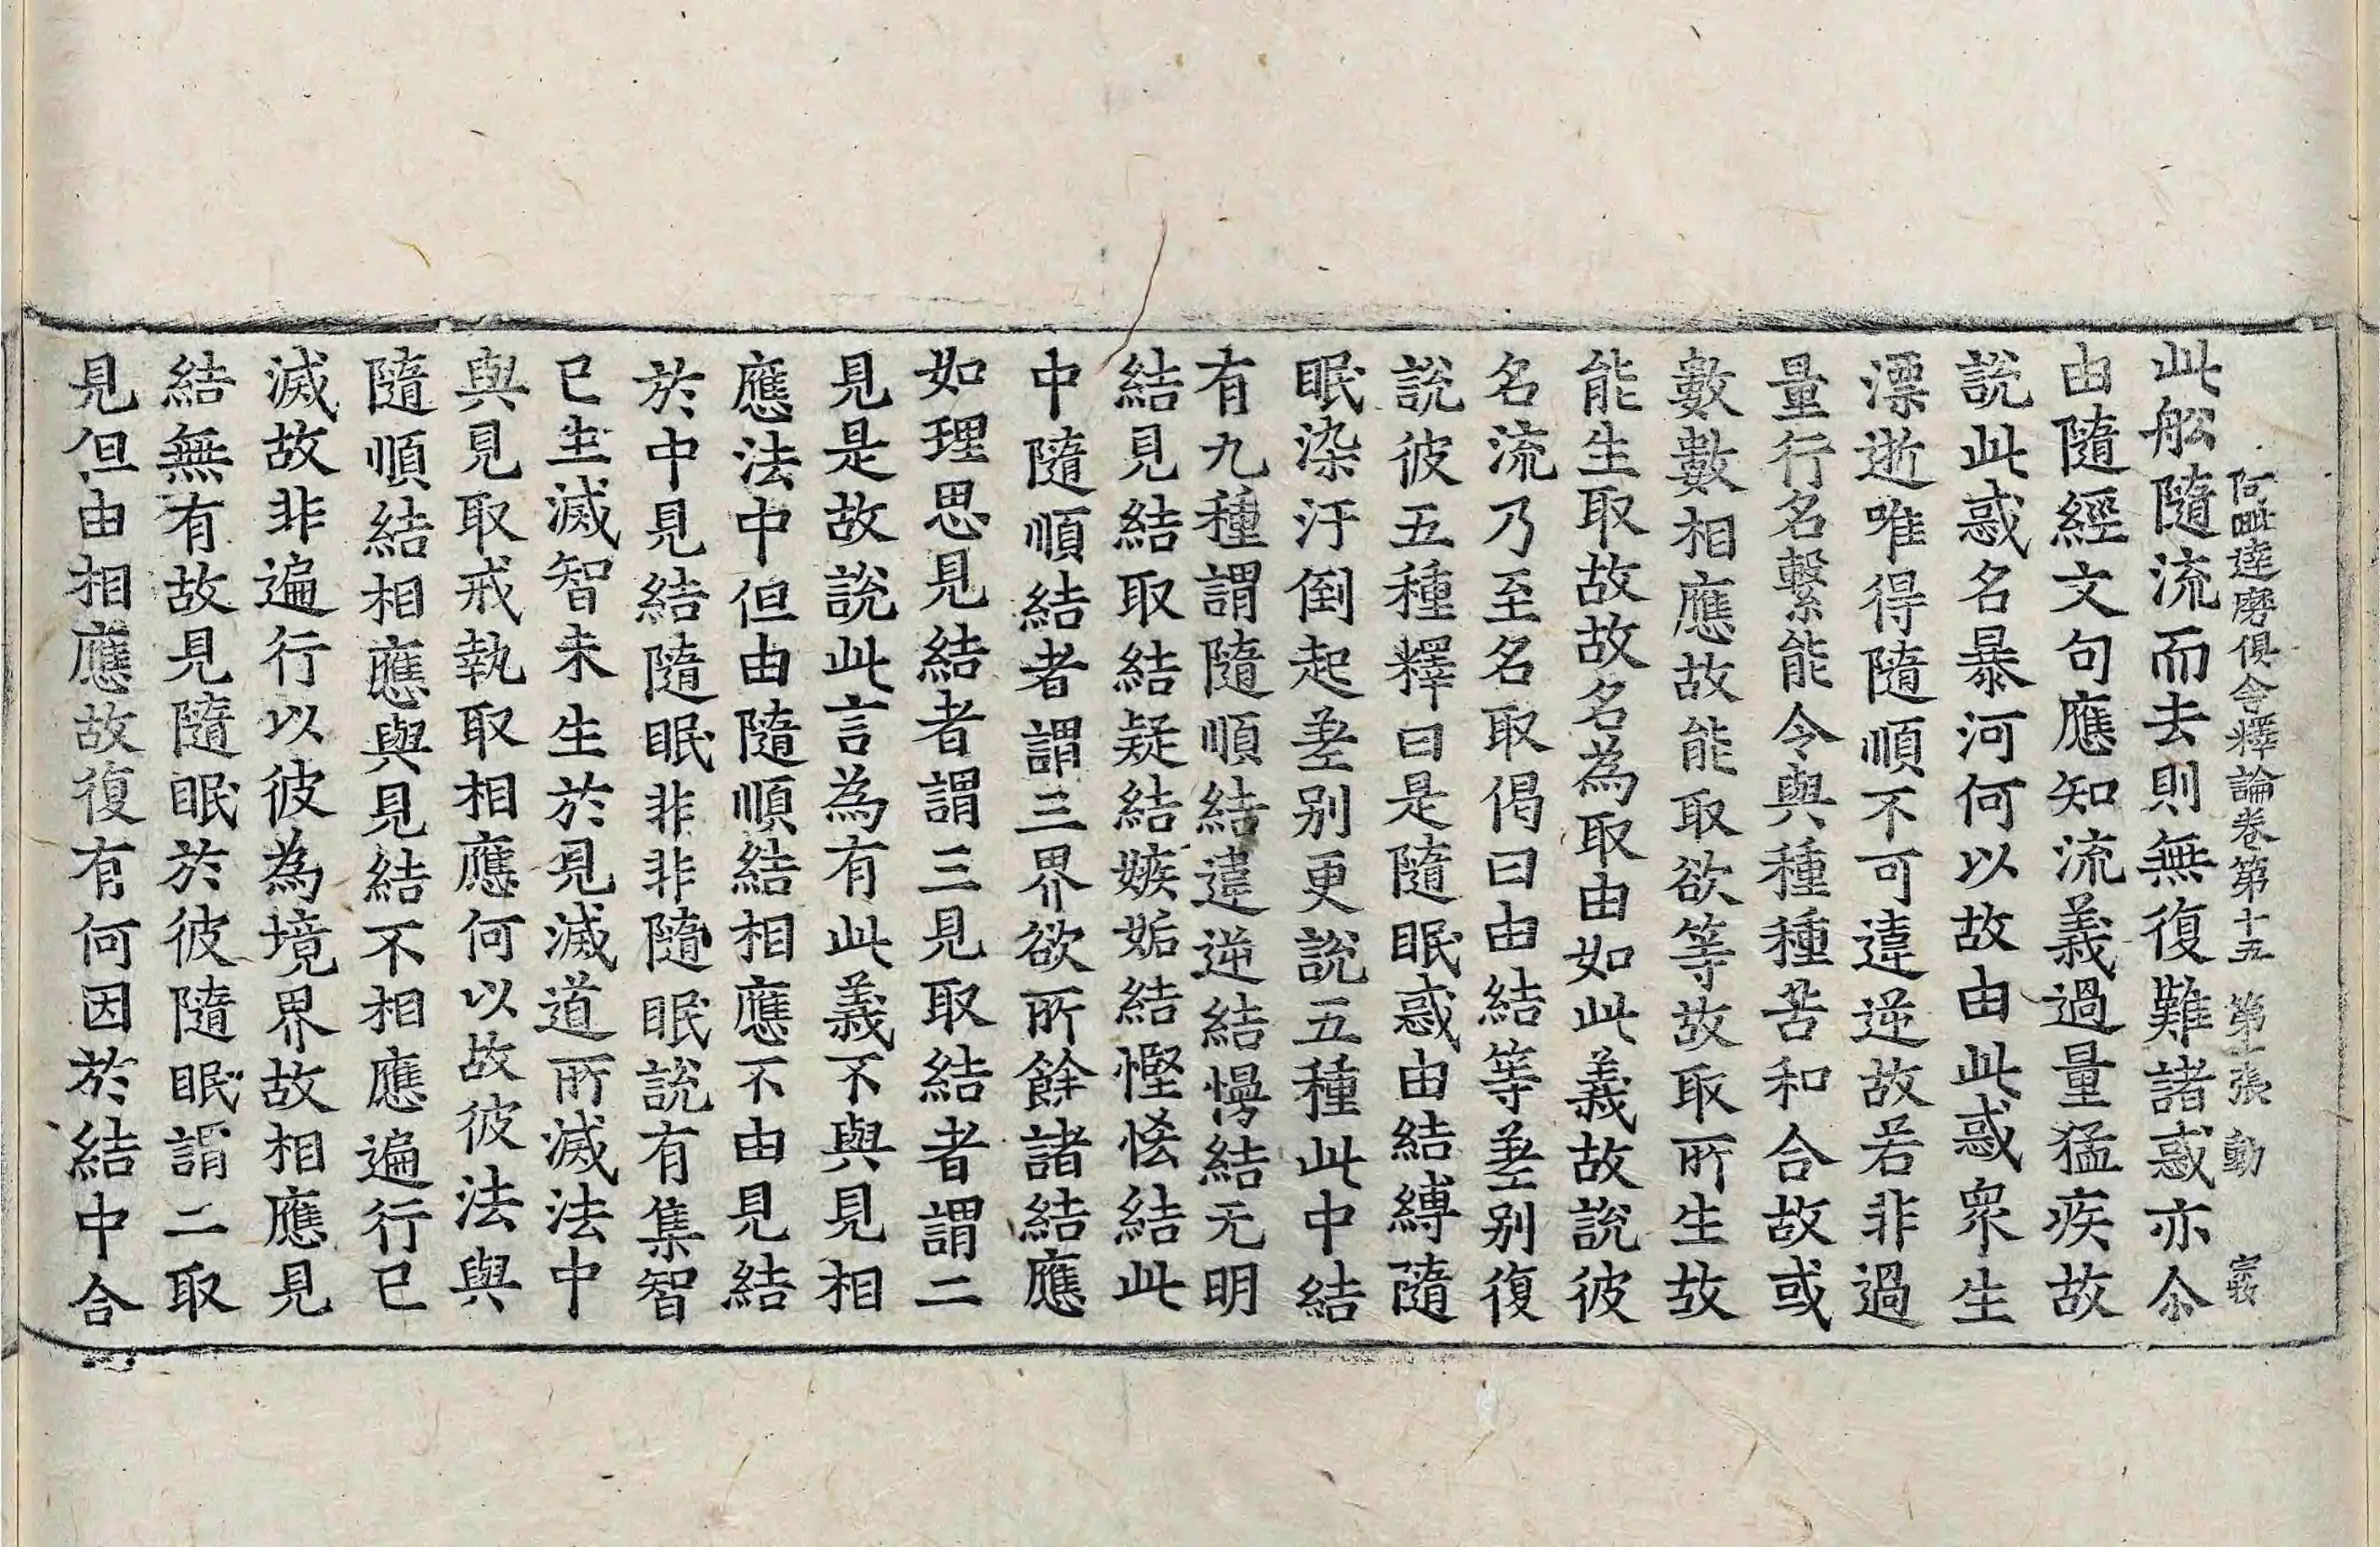 阿毗達磨俱舍釋論卷第十五 第二張 動
此舩隨流而去則無復難諸惑亦尒
由隨經文句應知流義過量猛疾故
說此惑名暴河何以故由此惑眾生
漂逝唯得隨順不可違逆故若非過
量行名繫能令與種種苦和合故或
數數相應故能取欲等故取所生故
能生取故故名為取由如此義故說彼
名流乃至名取偈曰由結等差別復
說彼五種釋曰是隨眠惑由結縛隨
眠染汙倒起差別更說五種此中結
有九種謂隨順結違逆結慢結无明
結見結取結疑結嫉妬結慳悋結此
中隨順結者謂三界欲所餘諸結應
如理思見結者謂三見取結者謂二
見是故說此言為有此義不與見相
應法中但由隨順結相應不由見結
於中見結隨眠非非隨眠說有集智
已生滅智未生於見滅道所滅法中
與見取戒執取相應何以故彼法與
隨順結相應與見結不相應遍行已
滅故非遍行以彼為境界故相應見
結無有故見隨眠於彼隨眠謂二取
見但由相應故復有何因於結中合